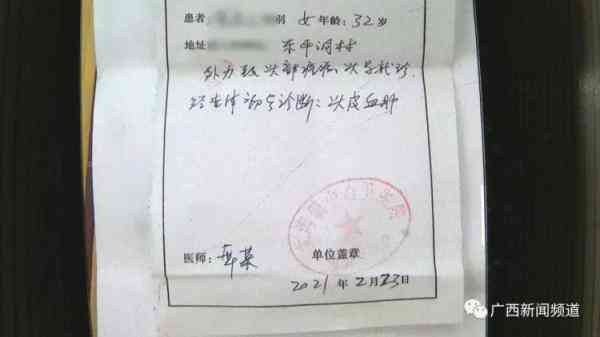 患者 羽 女 年龄：32岁
地址 东平洞村
外力致头部疼痛、头晕就诊
经查体初步诊断：头皮血肿
医师： 单位盖章
2021年2月23日
广西新闻频道